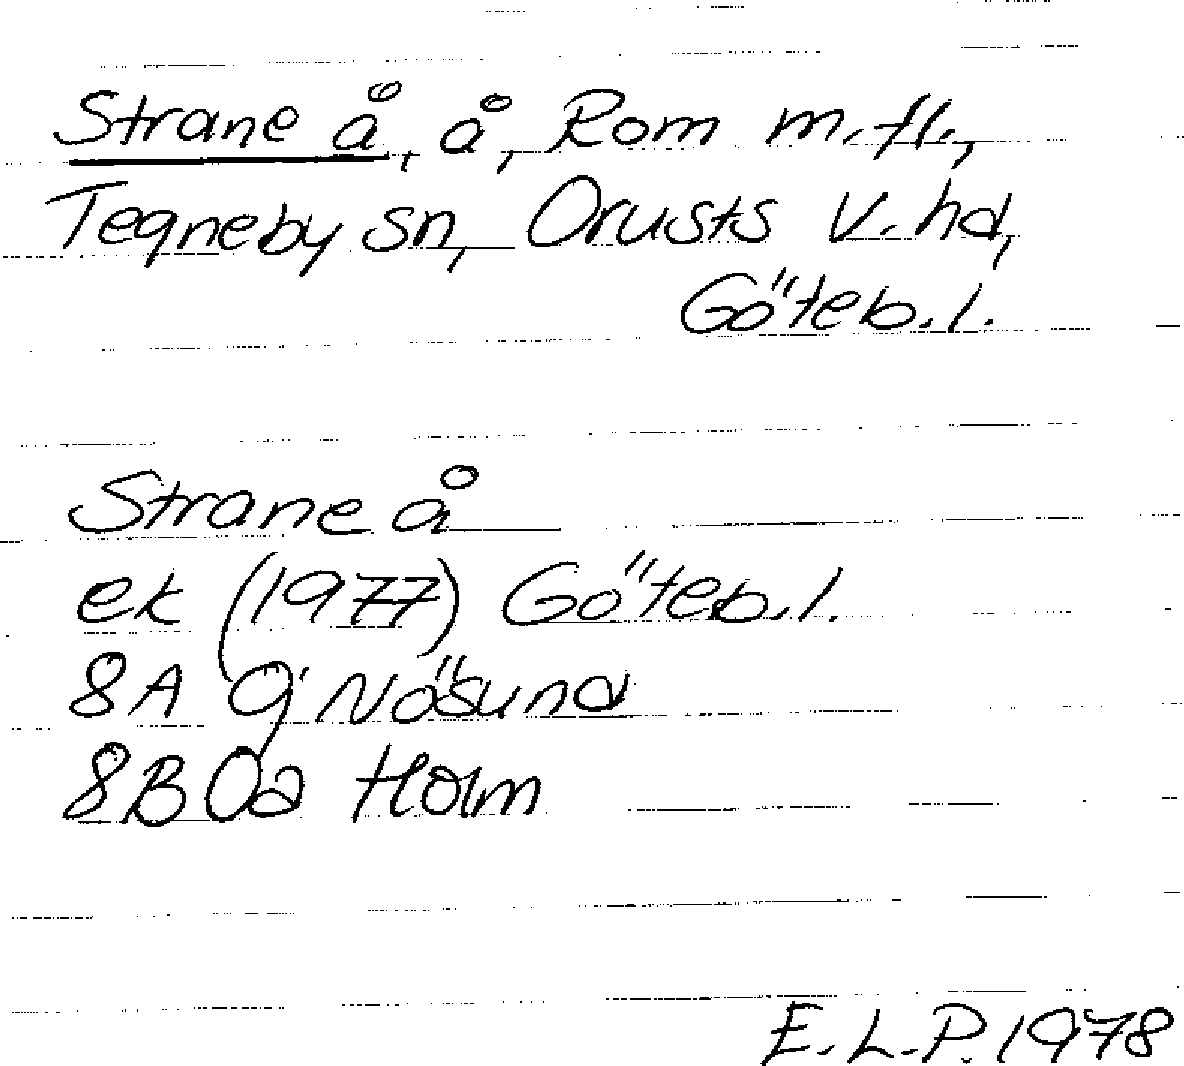 Strane å, å, Rom m.fl.,
Tegneby sn, Orusts V. hd,
Göteb. l.
Strane å
ek (1977) Göteb. l.
8A 9j Nösund
8B 0a Holm
E.L.P. 1978